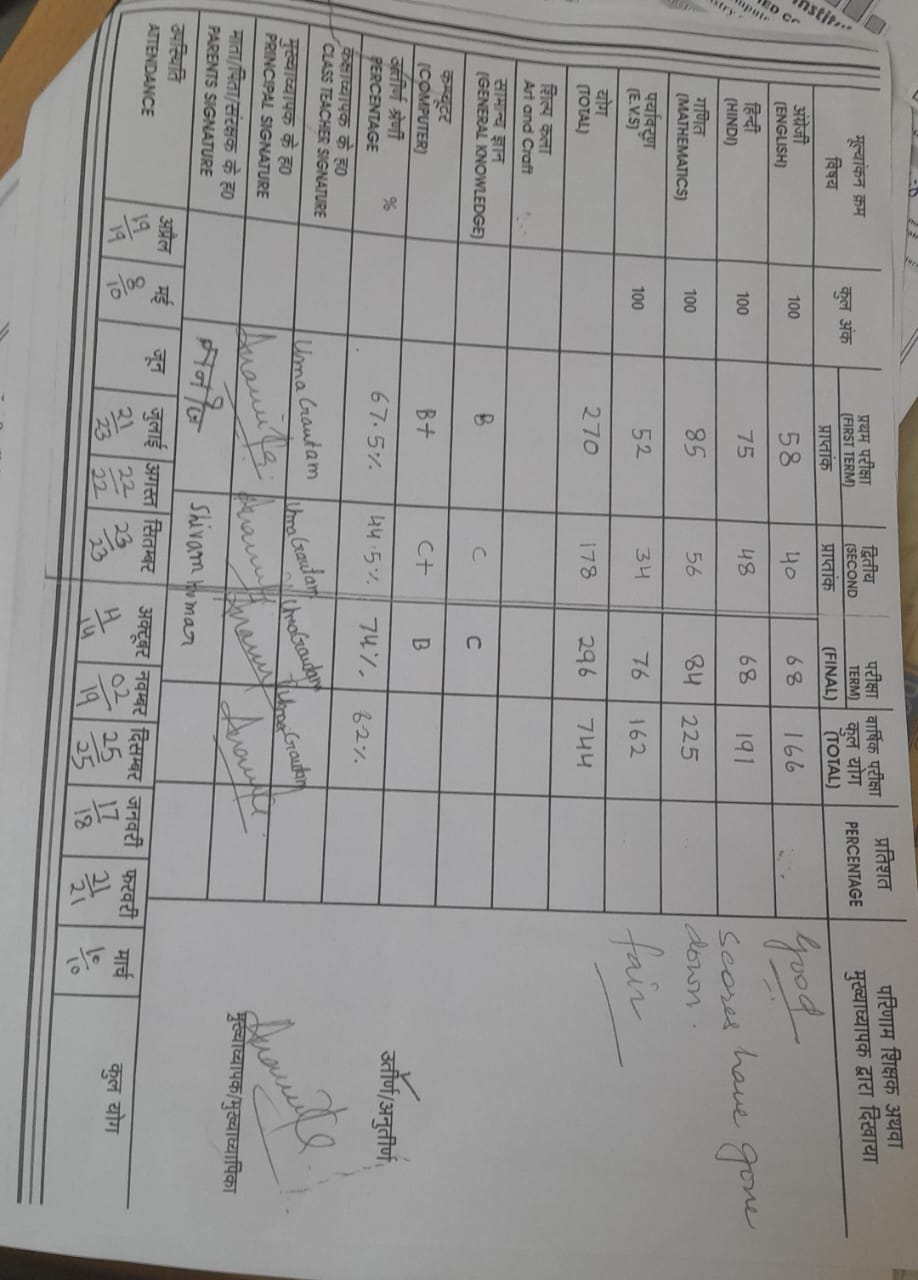 मूल्यांकन क्रम विषय कुल अंक प्रथम परीक्षा (FIRST TERM) प्राप्तांक द्वितीय (SECOND प्राप्तांक परीक्षा TERM) (FINAL) वार्षिक परीक्षा कुल योग (TOTAL) प्रतिशत PERCENTAGE परिणाम शिक्षक अथवा मुख्याध्यापक द्वारा दिखाया
अंग्रेजी (ENGLISH) 100 58 40 68 166 Good
हिन्दी (HINDI) 100 75 48 68 191 scores have gone
गणित (MATHEMATICS) 100 85 56 84 225 down.
पर्यावरण (E.V.S) 100 52 34 76 162 fair
योग (TOTAL) 270 178 296 744
शिल्प कला Art and Craft
सामान्य ज्ञान (GENERAL KNOWLEDGE) B C C
कम्प्यूटर (COMPUTER) B+ C+ B
उतीर्ण श्रेणी PERCENTAGE % 67.5% 44.5% 74% 62% उतीर्ण/अनुतीर्ण
कक्षाध्यापक के ह0 CLASS TEACHER SIGNATURE Uma Grautam Uma Grautam Uma Grautam Uma Grautam
मुख्याध्यापक के ह0 PRINCIPAL SIGNATURE
माता/पिता/संरक्षक के ह0 PARENTS SIGNATURE Shivam kumar मुख्याध्यापक/मुख्याध्यापिका
उपस्थिति ATTENDANCE अप्रैल मई जून जुलाई अगस्त सितम्बर अक्टूबर नवम्बर दिसम्बर जनवरी फरवरी मार्च कुल योग
19/19 8/10 21/23 22/22 23/23 11/14 02/19 25/25 17/18 21/21 10/10